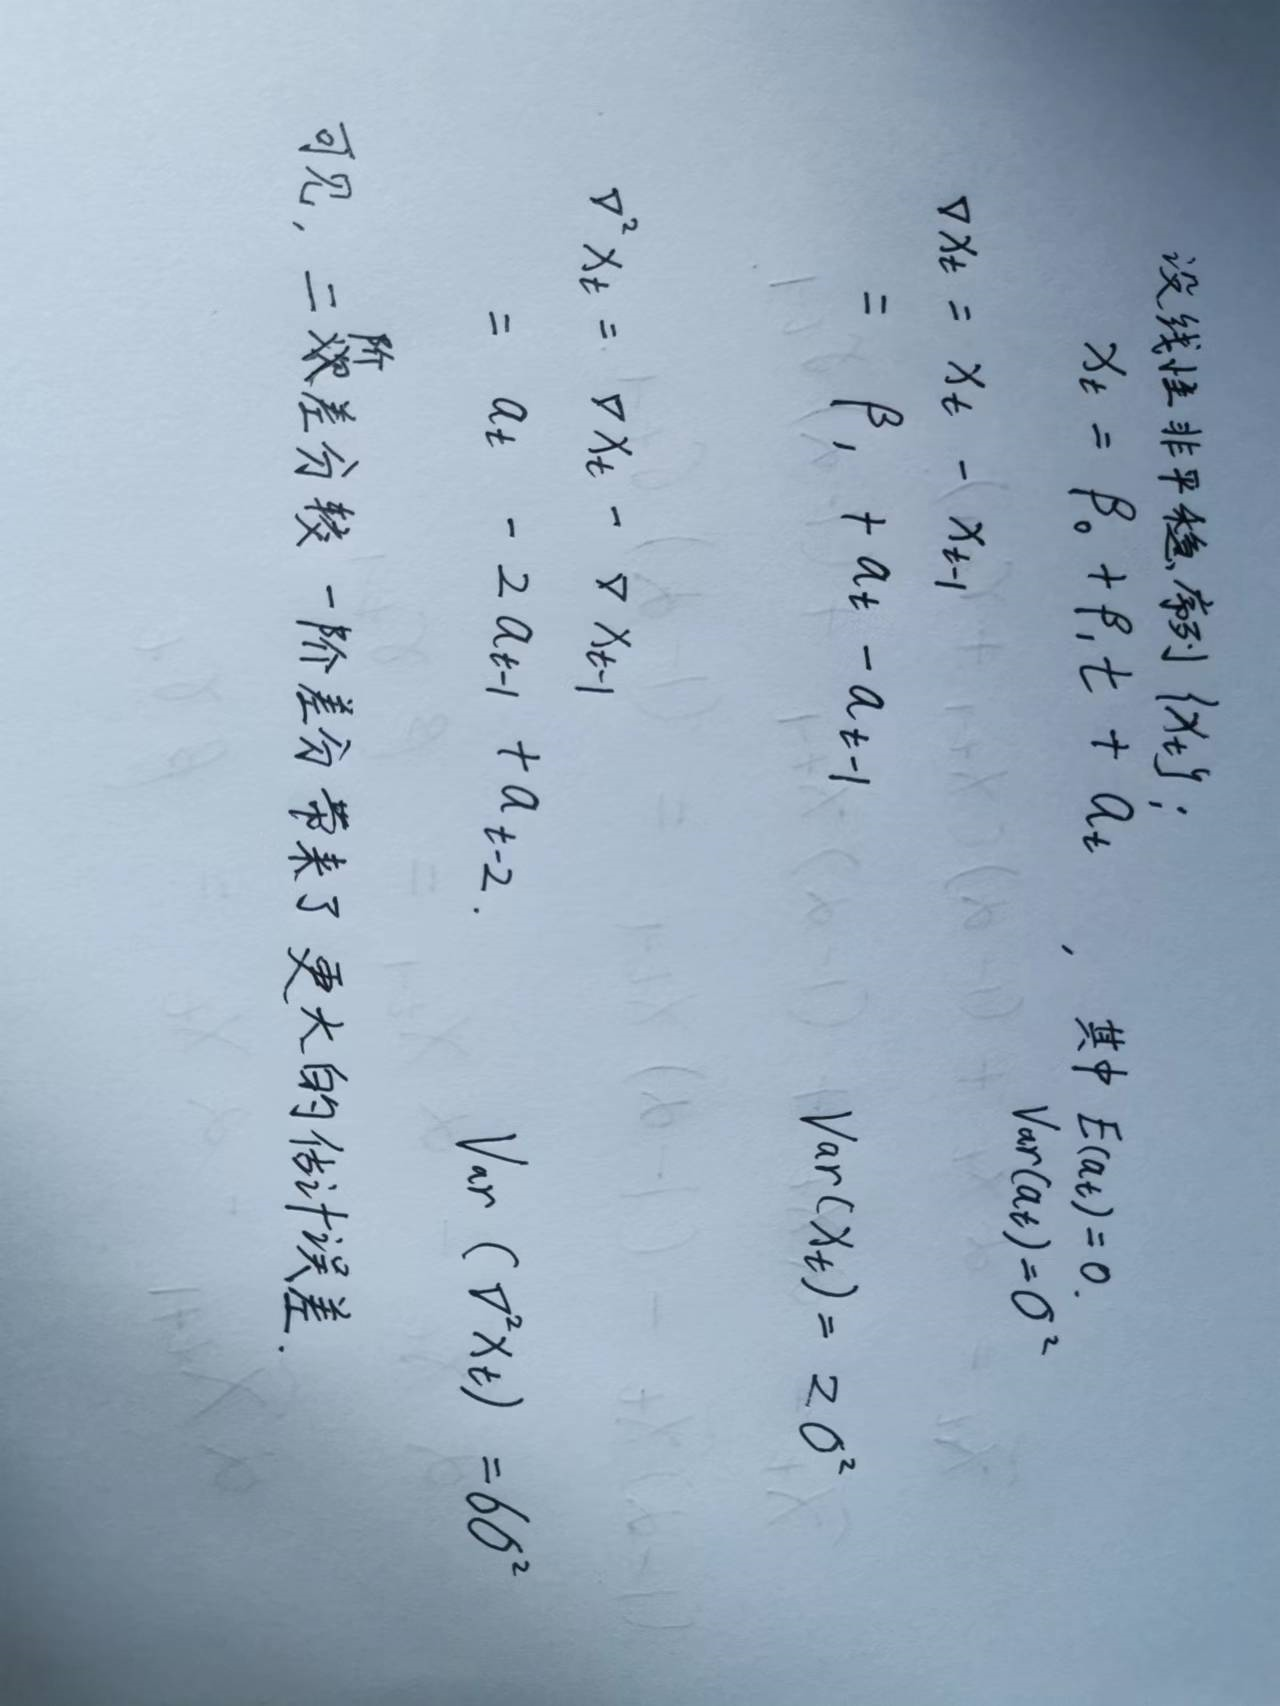 设线性非平稳序列{Xt}:
Xt = β₀ + β₁t + at , 其中 E(at)=0.
Var(at)=σ²
∇Xt = Xt - Xt-1
= β₁ + at - at-1 Var(Xt) = 2σ²
∇²Xt = ∇Xt - ∇Xt-1
= at - 2at-1 + at-2. Var(∇²Xt) = 6σ²
可见, 二阶差分较一阶差分带来了更大的估计误差.